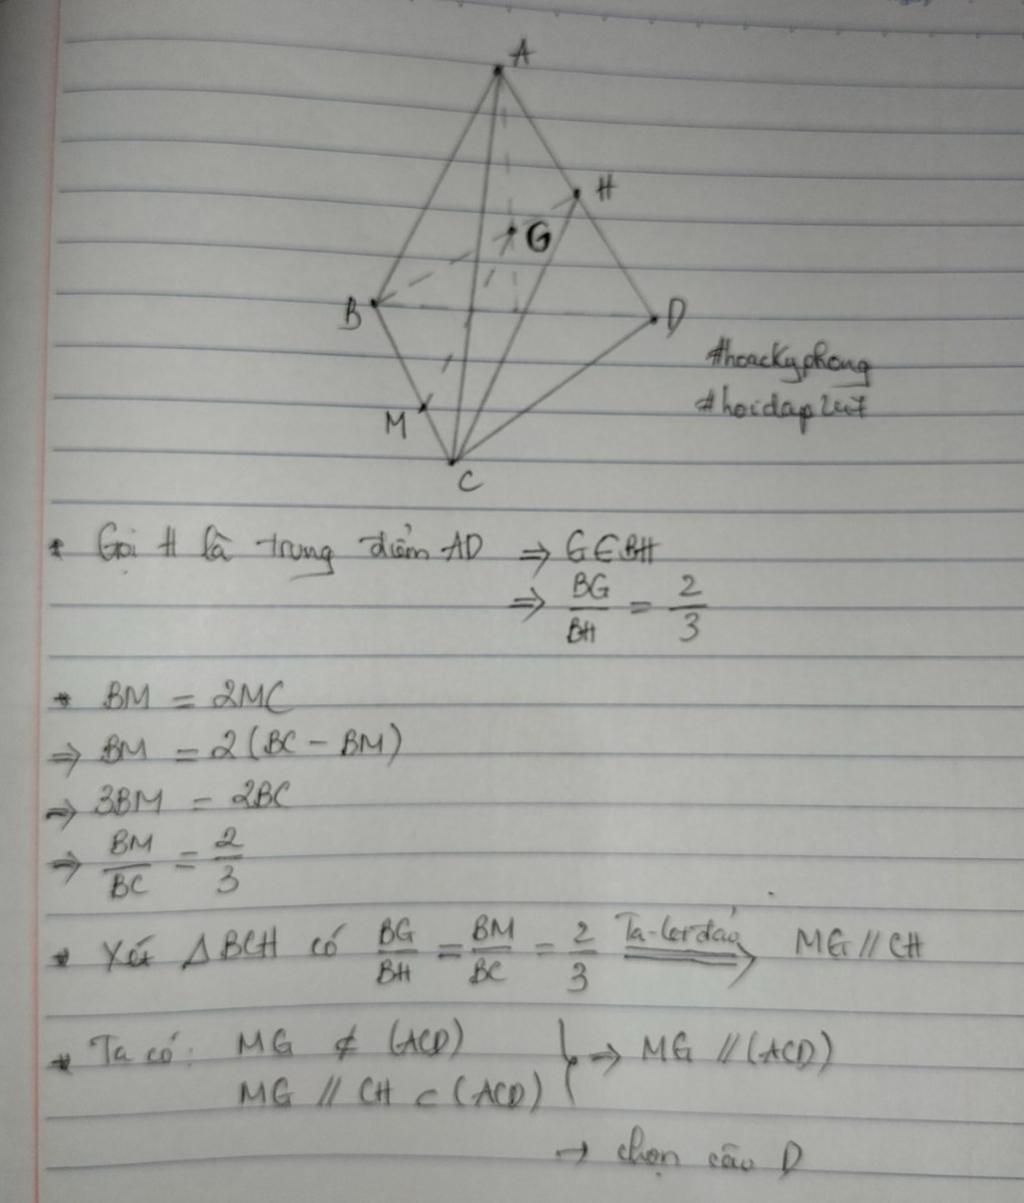 A
H
G
B
D
#hoackyphong
#hoidap247
M
C
* Gọi H là trung điểm AD ⇒ G∈BH
⇒ BG/BH = 2/3
* BM = 2MC
⇒ BM = 2(BC - BM)
⇒ 3BM = 2BC
⇒ BM/BC = 2/3
* Xét ΔBCH có BG/BH = BM/BC = 2/3 Ta-let đảo ⇒ MG // CH
* Ta có: MG ⊄ (ACD)
MG // CH ⊂ (ACD) } ⇒ MG // (ACD)
→ chọn câu D